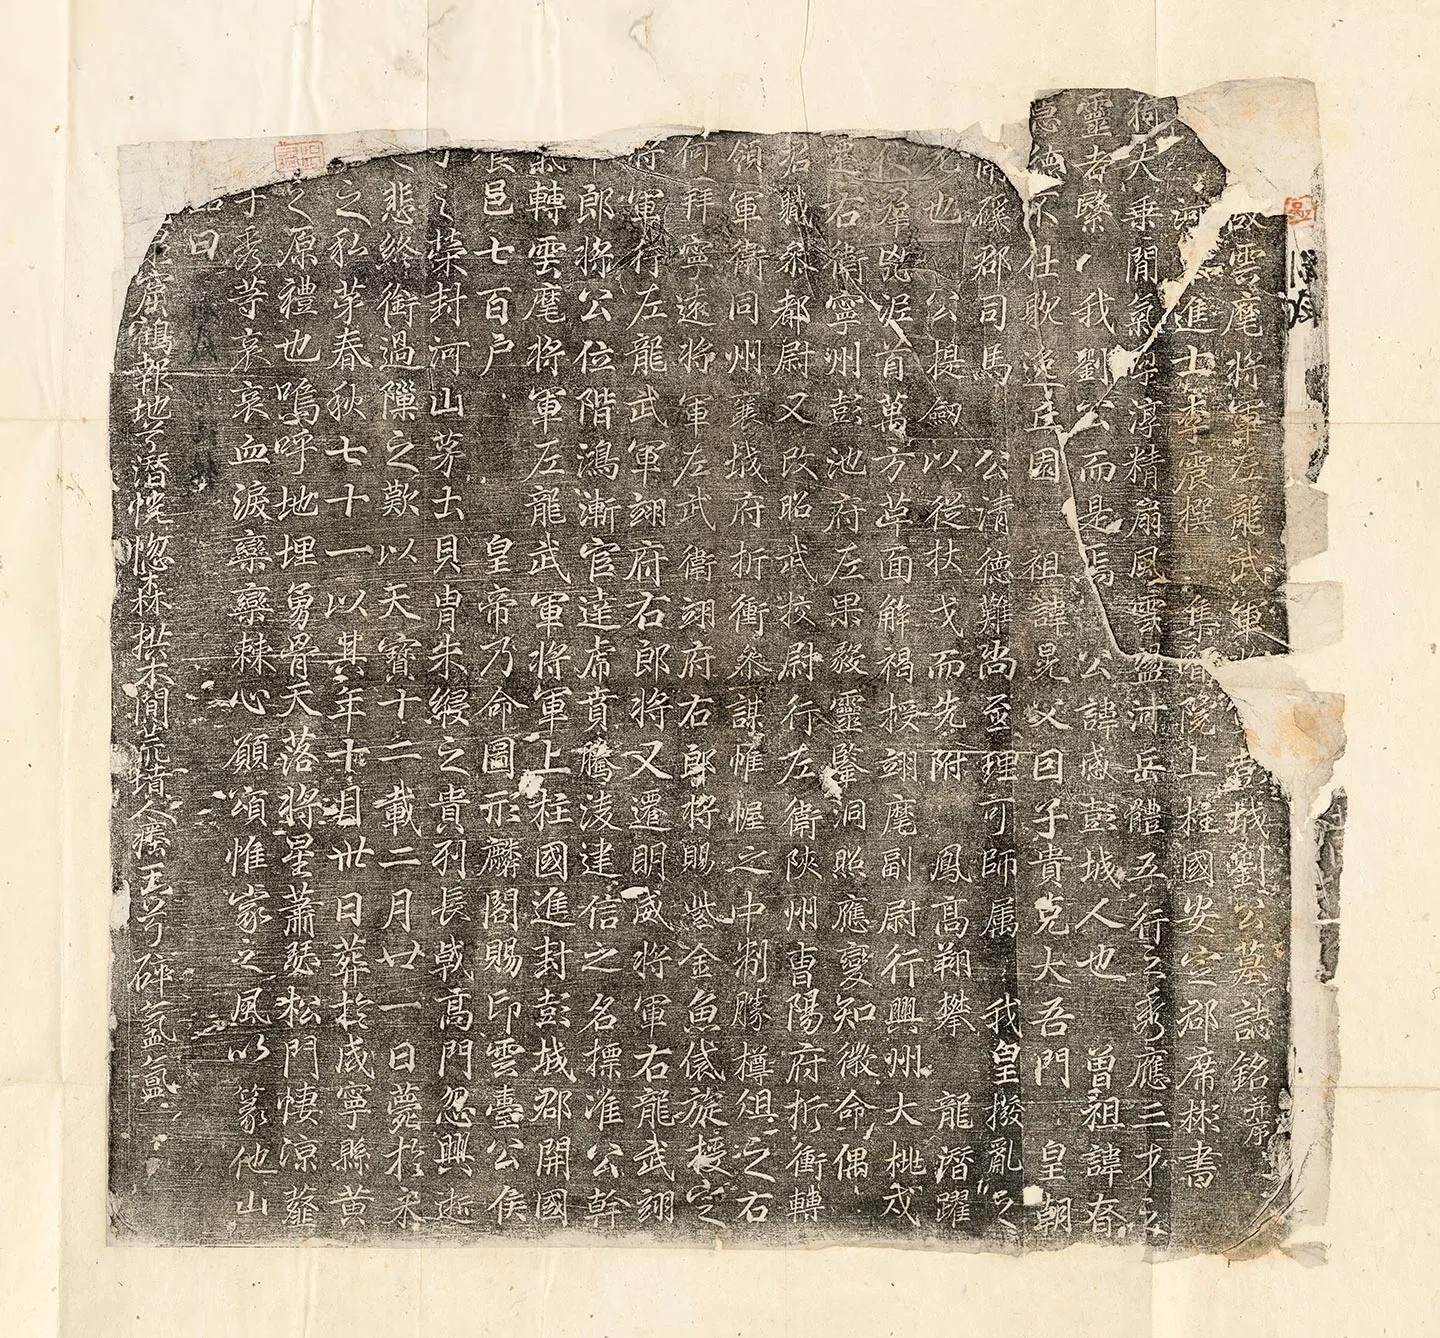 故雲麾將軍左龍武軍將軍彭城劉公墓誌銘并序
進士李震撰 集賢院上柱國安定郡席彬書
夫乘閒氣傑淳精扇風雲盬河岳體五行之秀應三才之
靈者繄我劉公而是焉 公諱感彭城人也 曾祖諱昚
隱德不仕耿逸丘園 祖諱晃 父曰子貴克大吾門 皇朝
磎郡司馬 公清德難尚至理可師属 我皇撥亂之
也 公提劒以從扙戈而先附 鳳高翔攀 龍潛躍
羣兇泥首萬方草面解褐授翊麾副尉行興州大桃戍
遷右衞寧州彭池府左果毅靈鑒洞照應變知微命偶
招職叅都尉又改昭武挍尉行左衞陝州曹陽府折衝轉
領軍衞同州襄城府折衝叅謀帷幄之中制勝樽俎之右
何拜寧遠將軍左武衞翊府右郎將賜紫金魚袋旋授定
將軍行左龍武軍翊府右郎將又遷明威將軍右龍武翊
郎將公位階鴻漸官達虎賁騰淩建信之名操准公幹
轉雲麾將軍左龍武軍將軍上柱國進封彭城郡開國
食邑七百户 皇帝乃命圖形麟閣賜印雲臺公侯
之榮封河山茅土貝冑朱綬之貴列長戟高門忽興逝
悲終銜過隟之歎以天寶十二載二月廿一日薨於禾
之私茅春秋七十一以其年十月卅日葬於咸寧縣黄
之原禮也嗚呼地埋勇骨天落將星蕭瑟松門悽涼薤
子秀等哀哀血淚欒欒棘心願頌惟家之風以篆他山
銘曰
鶴報地兮潛恍惚森拱木閒荒墳人瘞玉兮碎氤氳